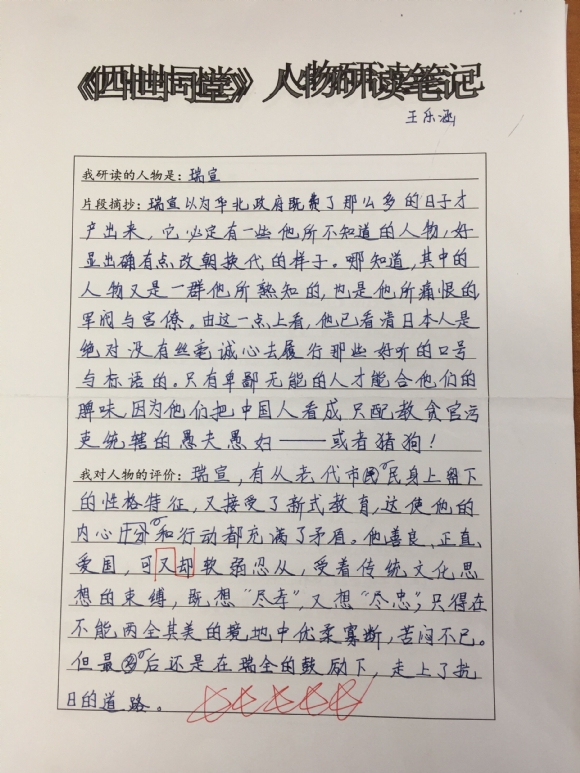 《四世同堂》人物研读笔记
王乐涵
我研读的人物是：瑞宣
片段摘抄：瑞宣以为华北政府既费了那么多的日子才
产出来，它必定有一些他所不知道的人物，好
显出确有点改朝换代的样子。哪知道，其中的
人物又是一群他所熟知的，也是他所痛恨的，
军阀与官僚。由这一点上看，他已看清日本人是
绝对没有丝毫诚心去履行那些好听的口号
与标语的。只有卑鄙无能的人才能合他们的
脾味，因为他们把中国人看成只配教贪官污
吏统辖的愚夫愚妇——或者猪狗！
我对人物的评价：瑞宣，有从老一代市民身上留下
的性格特征，又接受了新式教育，这使他的
内心和行动都充满了矛盾。他善良、正直、
爱国，可又却软弱忍从，受着传统文化思
想的束缚，既想“尽孝”，又想“尽忠”；只得在
不能两全其美的境地中优柔寡断，苦闷不已。
但最后还是在瑞全的鼓励下，走上了抗
日的道路。